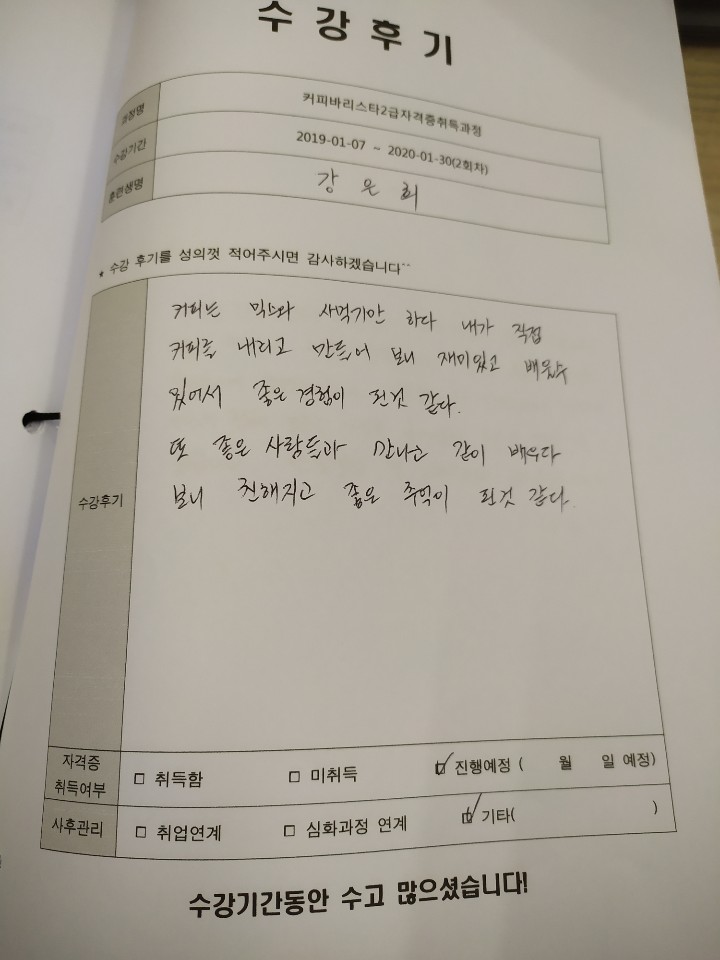 수강후기
과정명 커피바리스타2급자격증취득과정
수강기간 2019-01-07 ~ 2020-01-30(2회차)
훈련생명 강은희
* 수강 후기를 성의껏 적어주시면 감사하겠습니다^^
수강후기
커피는 믹스와 사먹기만 하다 내가 직접
커피를 내리고 만들어 보니 재미있고 배울수
있어서 좋은 경험이 된것 같다.
또 좋은 사람들과 만나고 같이 배우다
보니 친해지고 좋은 추억이 된것 같다.
자격증 취득여부 □ 취득함 □ 미취득 ☑ 진행예정 ( 월 일 예정)
사후관리 □ 취업연계 □ 심화과정 연계 ☑ 기타( )
수강기간동안 수고 많으셨습니다!